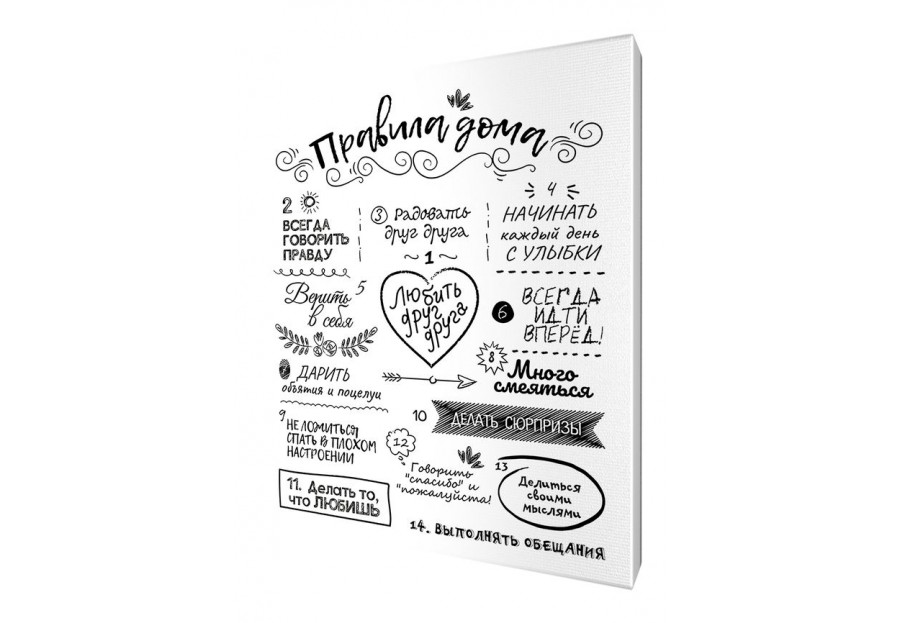 Правила дома
2
ВСЕГДА
ГОВОРИТЬ
ПРАВДУ
3 Радовать
друг друга
4
НАЧИНАТЬ
каждый день
С УЛЫБКИ
~ 1 ~
Любить
друг
друга
5
Верить
в себя
6
ВСЕГДА
ИДТИ
ВПЕРЁД!
ДАРИТЬ
объятия и поцелуи
8
Много
смеяться
9
НЕ ЛОЖИТЬСЯ
СПАТЬ В ПЛОХОМ
НАСТРОЕНИИ
10 ДЕЛАТЬ СЮРПРИЗЫ
11. Делать то,
что ЛЮБИШЬ
12
Говорить
"спасибо" и
"пожалуйста!
13
Делиться
своими
мыслями
14. ВЫПОЛНЯТЬ ОБЕЩАНИЯ